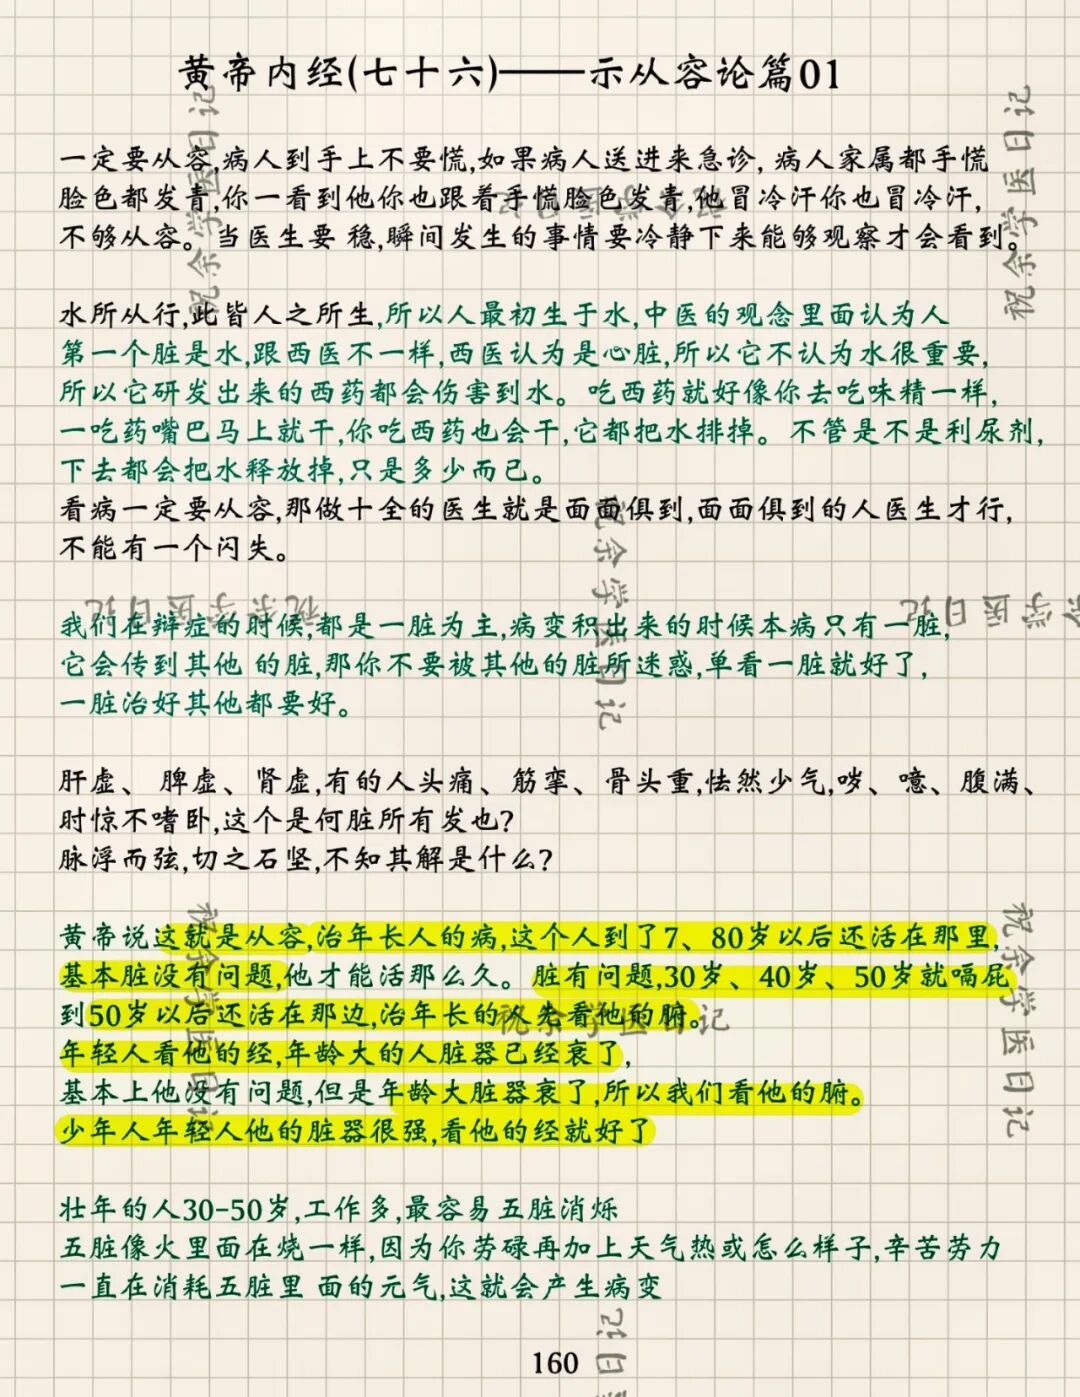 黄帝内经(七十六)——示从容论篇01
一定要从容,病人到手上不要慌,如果病人送进来急诊, 病人家属都手慌
脸色都发青,你一看到他你也跟着手慌脸色发青,他冒冷汗你也冒冷汗,
不够从容。当医生要 稳,瞬间发生的事情要冷静下来能够观察才会看到。
水所从行,此皆人之所生,所以人最初生于水,中医的观念里面认为人
第一个脏是水,跟西医不一样,西医认为是心脏,所以它不认为水很重要,
所以它研发出来的西药都会伤害到水。吃西药就好像你去吃味精一样,
一吃药嘴巴马上就干,你吃西药也会干,它都把水排掉。不管是不是利尿剂,
下去都会把水释放掉,只是多少而已。
看病一定要从容,那做十全的医生就是面面俱到,面面俱到的人医生才行,
不能有一个闪失。
我们在辩症的时候,都是一脏为主,病变积出来的时候本病只有一脏,
它会传到其他 的脏,那你不要被其他的脏所迷惑,单看一脏就好了,
一脏治好其他都要好。
肝虚、 脾虚、肾虚,有的人头痛、筋挛、骨头重,怯然少气,哕、噫、腹满、
时惊不嗜卧,这个是何脏所有发也?
脉浮而弦,切之石坚,不知其解是什么?
黄帝说这就是从容,治年长人的病,这个人到了7、80岁以后还活在那里,
基本脏没有问题,他才能活那么久。脏有问题,30岁、40岁、50岁就嗝屁
到50岁以后还活在那边,治年长的人先看他的腑。
年轻人看他的经,年龄大的人脏器已经衰了,
基本上他没有问题,但是年龄大脏器衰了,所以我们看他的腑。
少年人年轻人他的脏器很强,看他的经就好了
壮年的人30-50岁,工作多,最容易五脏消烁
五脏像火里面在烧一样,因为你劳碌再加上天气热或怎么样子,辛苦劳力
一直在消耗五脏里 面的元气,这就会产生病变
160
祝余学医日记
祝余学医日记
祝余学医日记
祝余学医日记
祝余学医日记
余学医日记
祝余学医日记
祝余学医日记
祝余学医日记
医日记